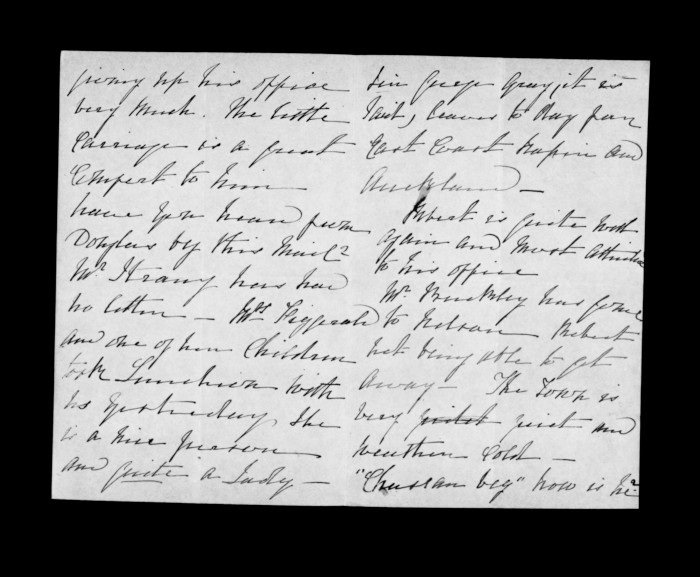 giving up his office
very much. The little
Carriage is a great
Comfort to him —
have you heard from
Douglas by this Mail?
Mr Strang has had
no letter — Mrs Fitzgerald
and one of her Children
took Luncheon with
us yesterday, She
is a nice person
and quite a Lady —
Sir George Grey, it is
said, leaves to day for
East Coast Napier and
Auckland —
Robert is quite well
again and most attentive
to his office
Mr Bunkley has gone
to Nelson Robert
not being able to get
away — The Town is
very quiet and
weather Cold —
"Churan beg" how is he?